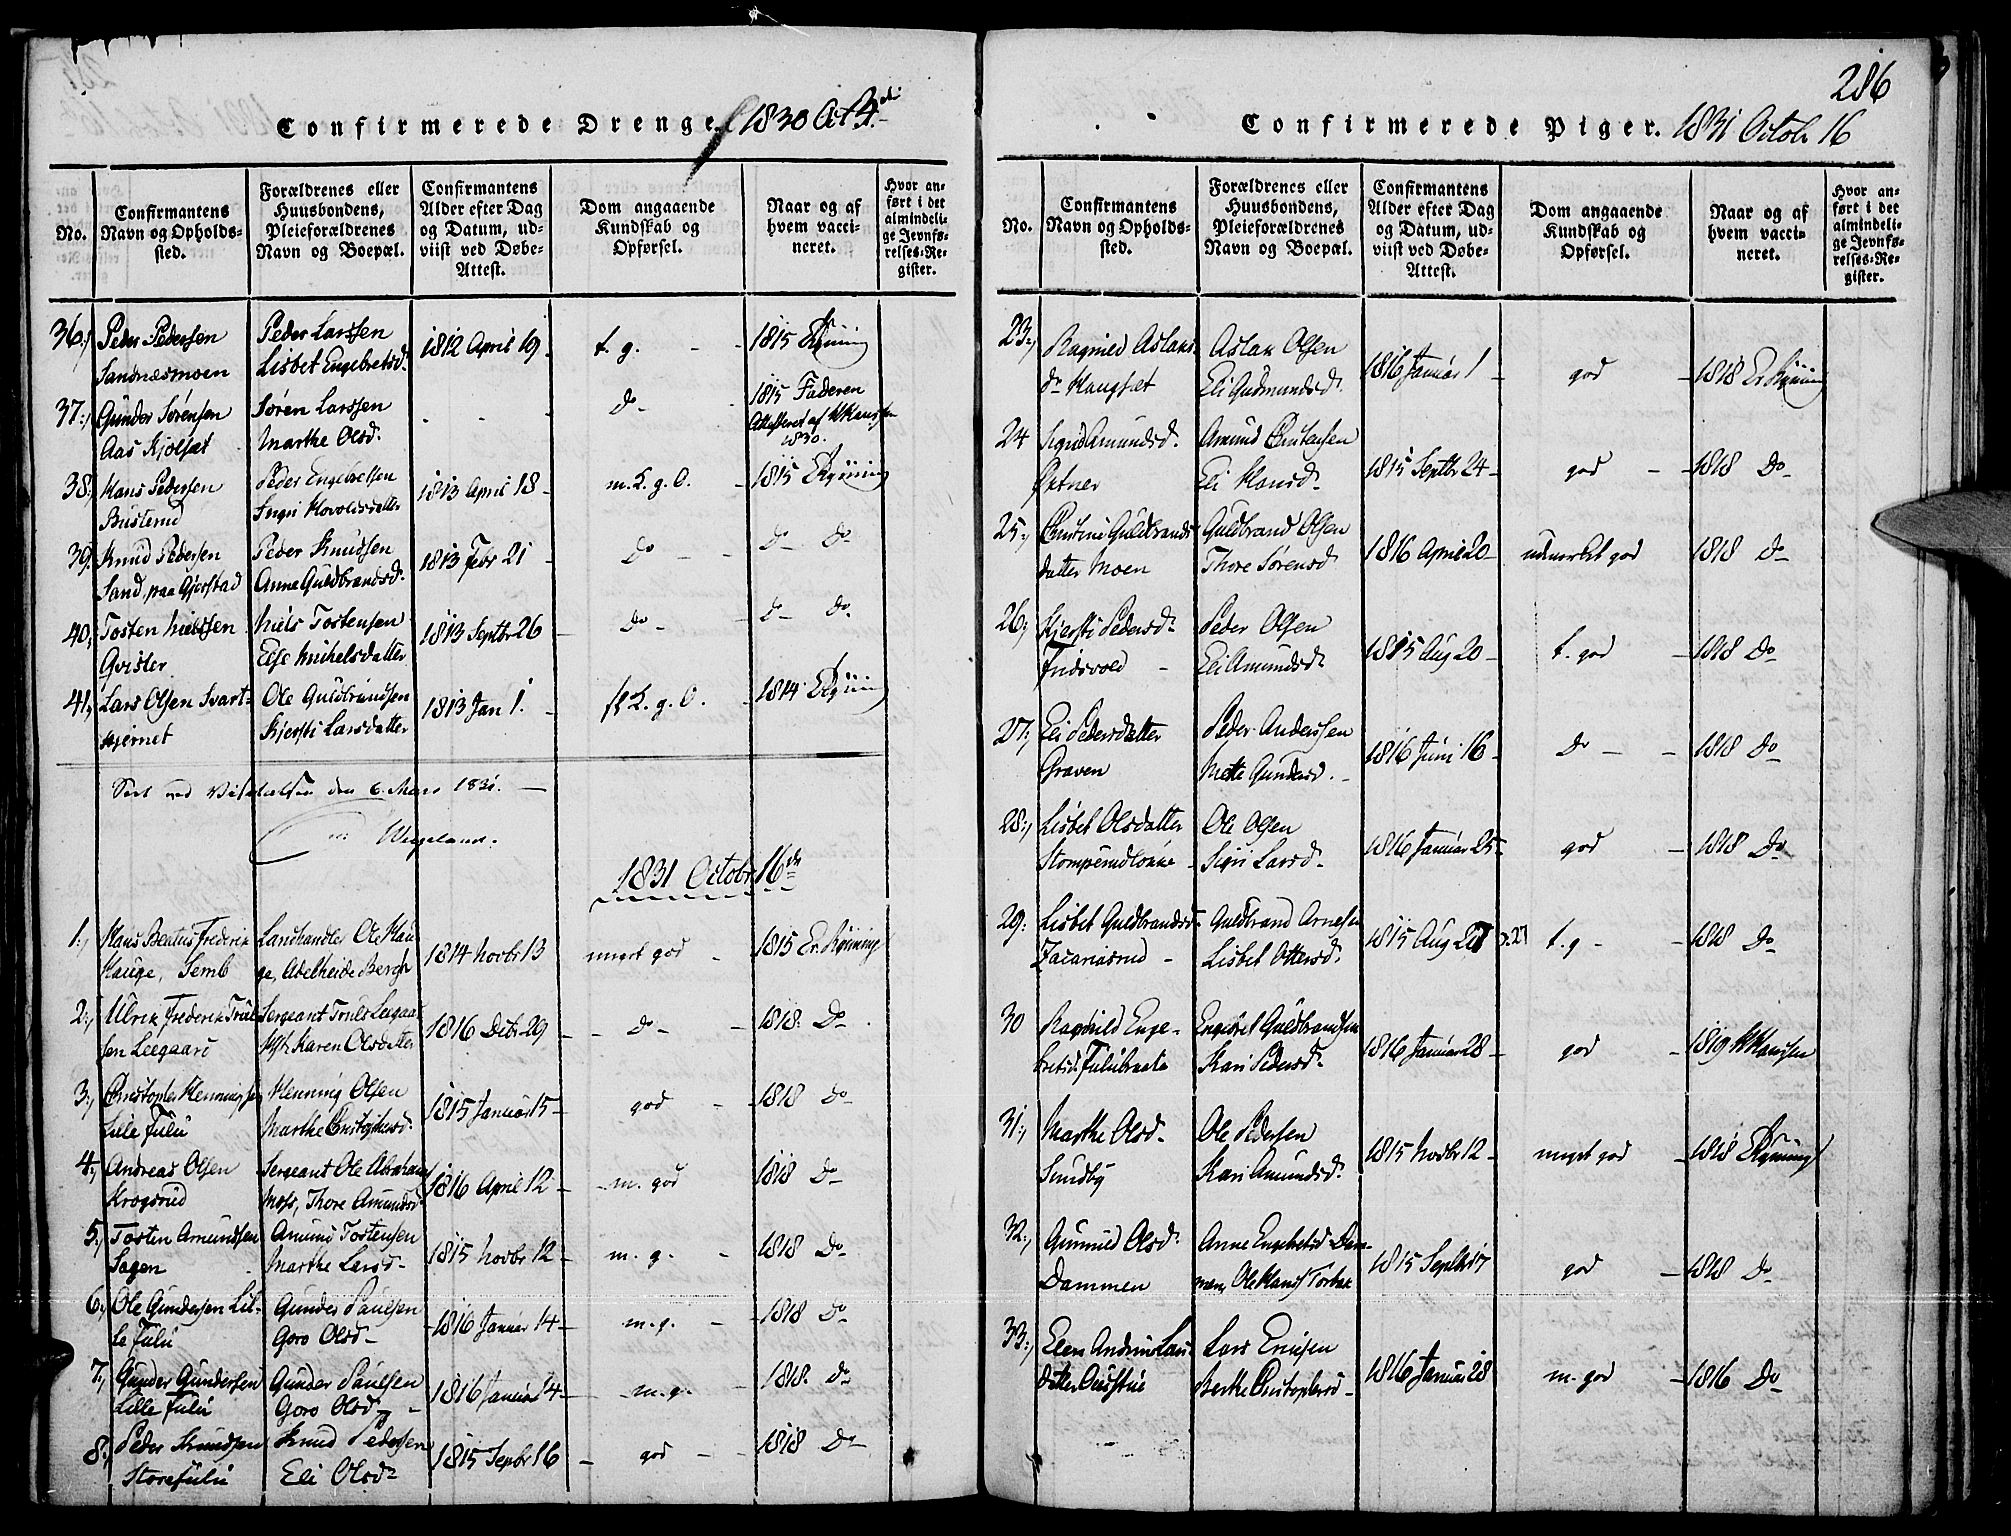 Confirmerede Drenge. 1830 Oct 4.
No.
Confirmantens
Navn og Opholds-
sted.
Forældrenes eller
Huusbondens,
Pleieforældrenes
Navn og Boepæl.
Confirmantens
Alder efter Dag
og Datum, ud-
viist ved Døbe-
Attest.
Dom angaaende
Kundskab og
Opførsel.
Naar og af
hvem vacci-
neret.
Hvor an-
ført i det
almindeli-
ge Jevnfø-
relses-Re-
gister.
36., Peder Pedersen Peder Larssen 1812 April 19. t. g. 1815
Sandnæsmoen Lisbet Engebretsd.
37., Gunder Sørensen Søren Larssen - - Do 1815 Faderen
Aas Marthe Olsd. Attesteret af
1830.
38., Hans Pedersen Peder Engebretsen 1813 April 18 - m. K. g. O. - 1815
Busterud
39. Knud Pedersen Peder Knudsen 1813 Febr 21 - Do - - Do Do
Sand, paa Gjerstad Anne Guldbrandsd.
40., Tosten Nielssen Niels Tostensen 1813 Septbr 26 - Do - Do Do
Qvisler Else Mikelsdatter
41., Lars Olsen Svart- Ole Guldbrandsen 1813 Jan 1. - K. g. O. - 1814
tjernet Kjersti Larsdatter
den 6. Mars 1831.
Wergeland.
1831 Octobr 16de
1., Hans Beatus Frederik Landhandler Ole Hau- 1814 Novbr 13 meget god - 1815
Hauge, Semb ge, Adelheide
2., Ulrik Frederik Sergeant 1816 Debr 29 - Do - - 1818. Do
sen Leegaard Karen Olsdatter
3., Christopher Henningsen Henning Olsen 1815 Januar 15 - god - 1818 Do
Lille Fulu Marthe Christophersd.
4., Andreas Olsen Sergeant Ole Abraham 1816 April 12 - m. god 1818 Do
Krogsrud Moss, Thore Amundsd
5., Tosten Amundsen Amund Tostensen 1815 Novbr 12 - m. g. - 1818 Do
Sagen Marthe Larsd -
6., Ole Gundersen Lil- Gunder Paulsen 1816 Januar 14 - m. g. - 1818 Do
le Fulu Goro Olsd -
7., Gunder Gundersen Gunder Paulsen 1816 Januar 14 - m. g. - 1818. Do
Lille Fulu Goro Olsd -
8., Peder Knudsen Knud Pedersen 1815 Sepbr 16 - god - 1818 Do
Storefulu Eli Olsd
286
Confirmerede Piger. 1831 Octob 16
No.
Confirmantens
Navn og Opholds-
sted.
Forældrenes eller
Huusbondens,
Pleieforældrenes
Navn og Boepæl.
Confirmantens
Alder efter Dag
og Datum, ud-
viist ved Døbe-
Attest.
Dom angaaende
Kundskab og
Opførsel.
Naar og af
hvem vacci-
neret.
Hvor an-
ført i det
almindeli-
ge Jevnfø-
relses-Re-
gister.
23., Ragnild Aslaks- Aslak Olsen 1816 Januar 1 - god - 1818
Eli Gudmundsd.
24 Sigrid Amundsd. Amund Christensen 1815 Septbr 24 - god - 1818 Do
Eli Hansd
25., Christine Guldbrands Guldbrand Olsen 1816 April 20 - udmærket god 1818 Do
datter Moen Thore Sørensd
26., Kjersti Pedersd Peder Olsen 1815 Aug 20 - t. god - 1818 Do
Eli Amundsd.
27., Eli Pedersdatter Peder Anderssen 1816 Juni 16 - Do - - 1818 Do
Graven Mette Gundersd. -
28., Lisbet Olsdatter Ole Olsen 1816 Januar 25 - god - 1818 Do
Stomperudløkke - Sigri Larsd -
29. Lisbet Guldbrandsd. Guldbrand Arnesen 1815 Aug 27 27 t. g - - 1818 Do
Zacariasrud - Lisbet Ottersd.
30 Ragnhild Enge- Engebret Guldbrandsen 1816 Januar 28 - god - 1819
bretsd. Fulubraata Kari Pedersd.
31., Marthe Olsd. Ole Pedersen 1815 Novbr 12 - meget god - 1818
Sundby Kari Amundsd.
32., Gunnild Olsd. Anne Engebretsd Dam- 1815 Septbr 17 god - 1818 Do
Dammen men, Ole
33., Elen Andrine Lars- Lars Ericsen 1816 Januar 28 m. god - 1816 Do
datter Berthe Christophersd -